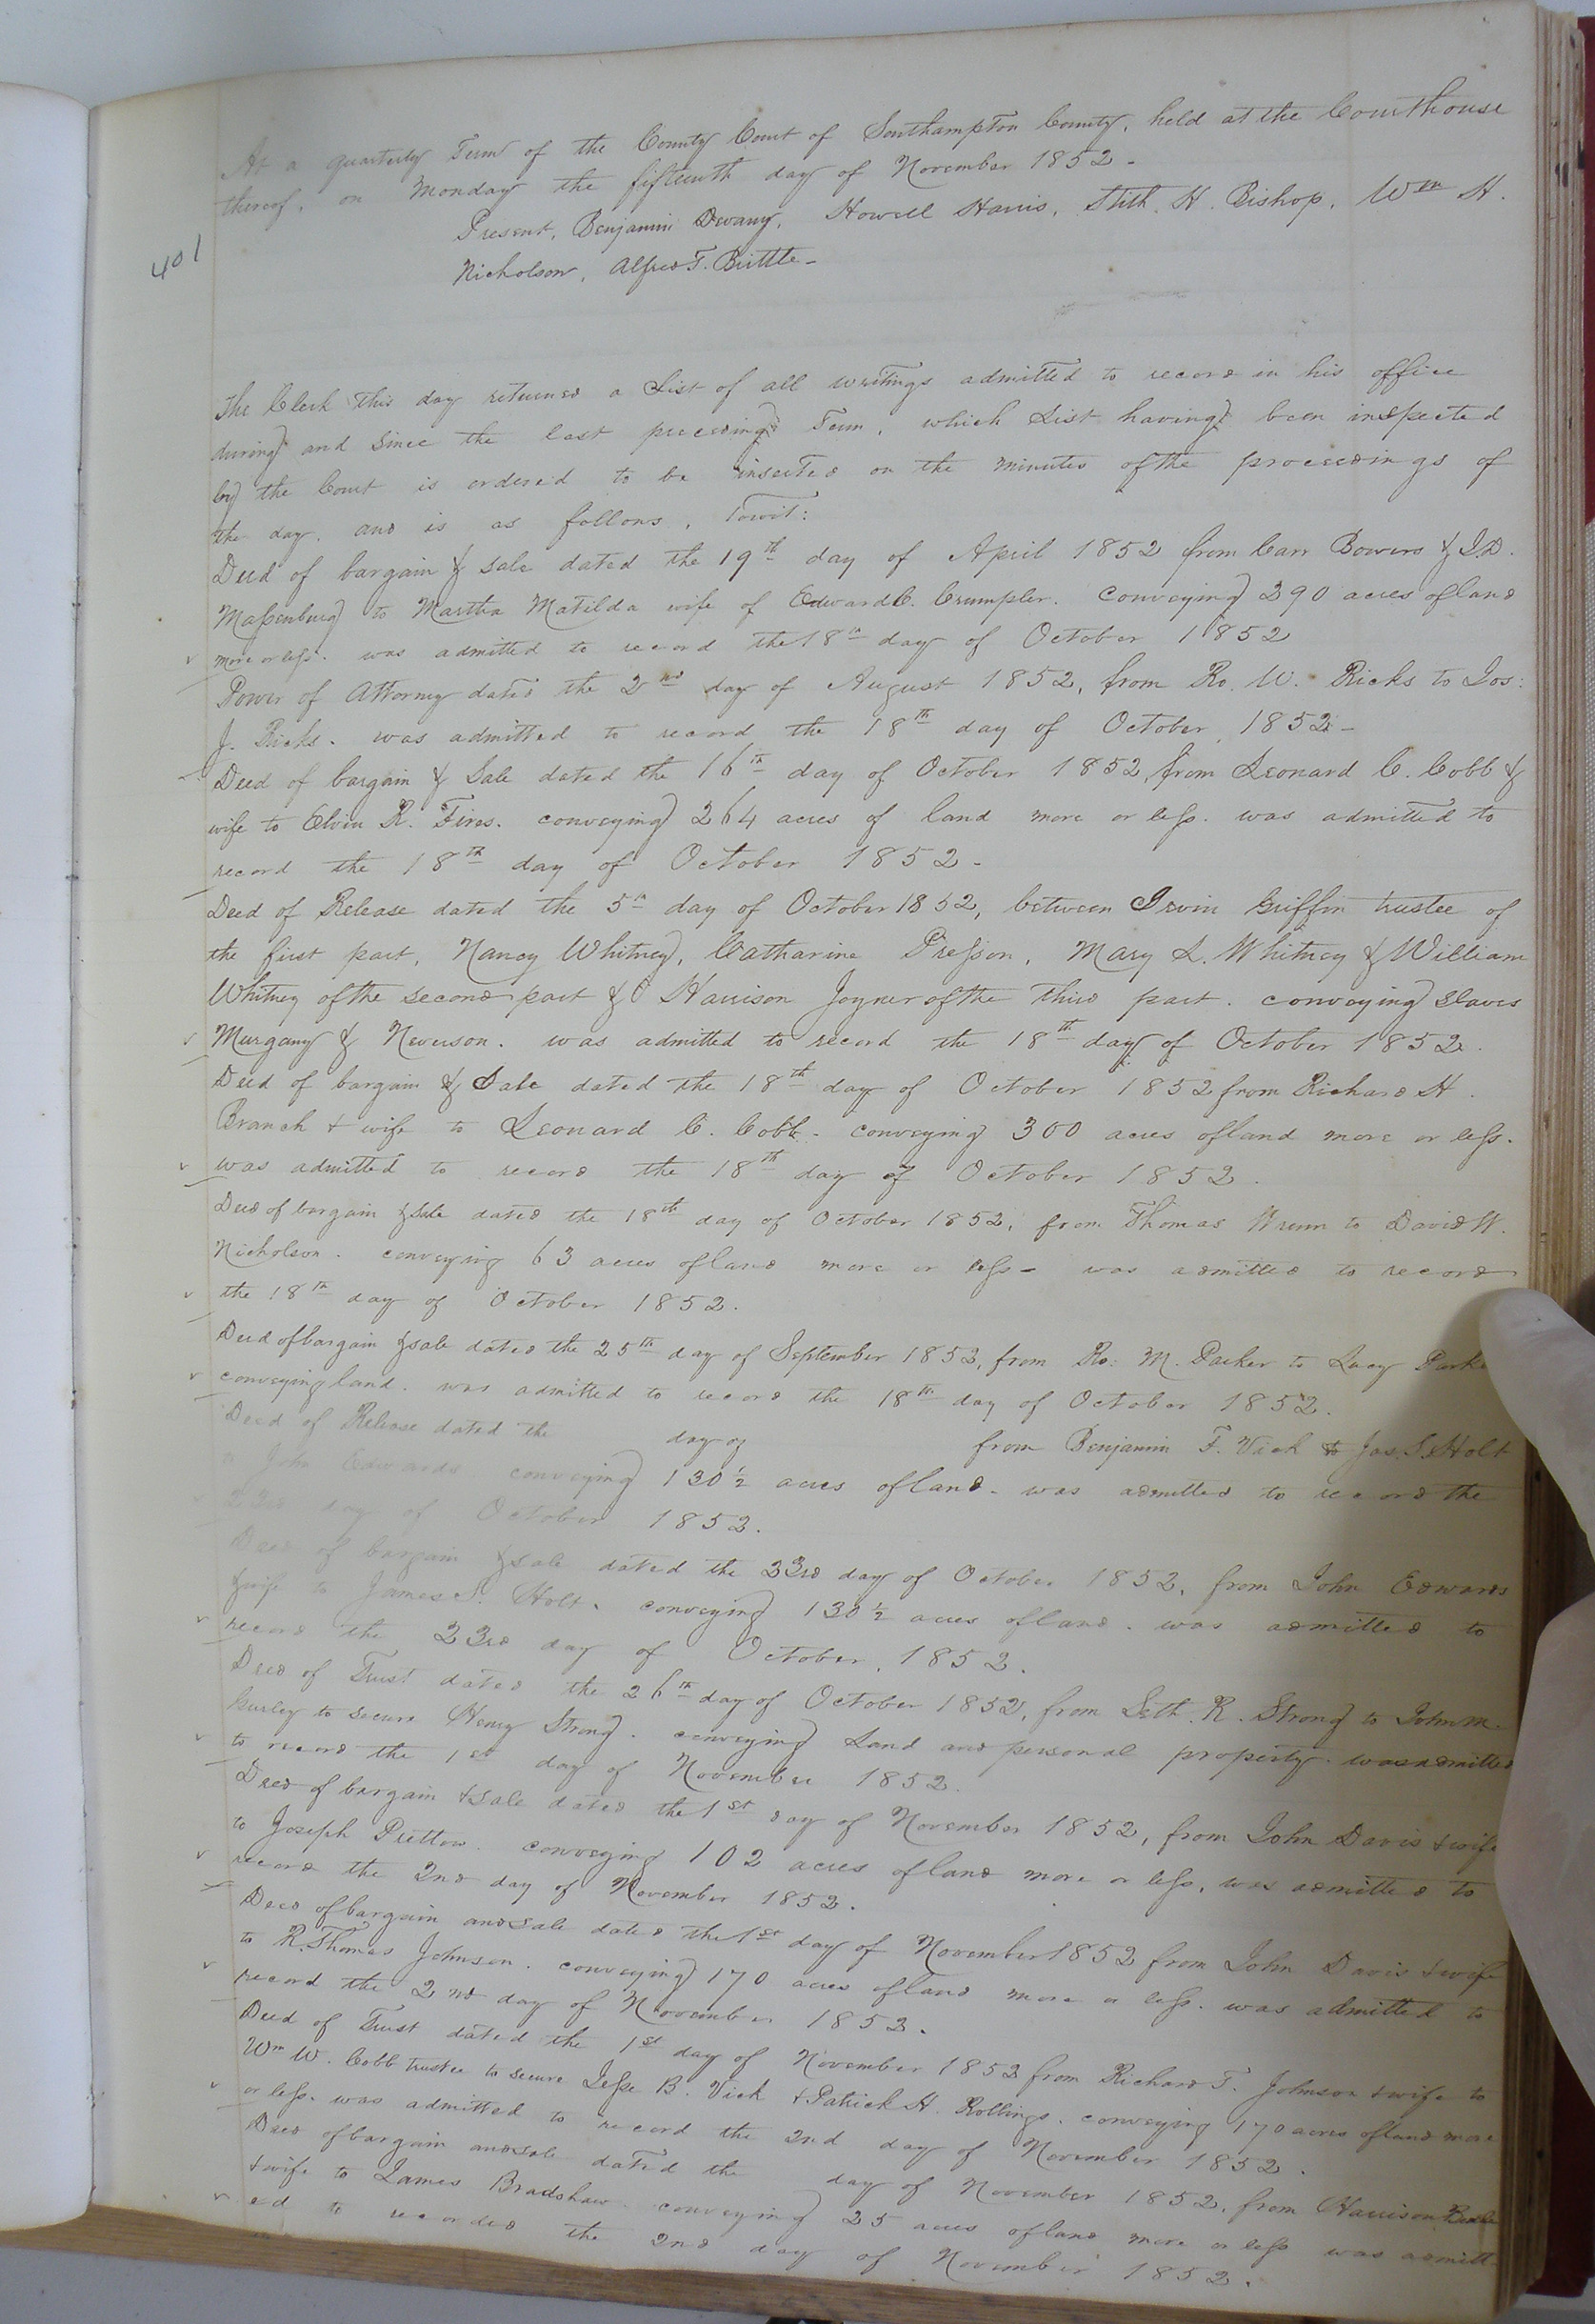 At a quarterly Term of the County Court of Southampton County, held at the Courthouse
thereof, on Monday the fifteenth day of November 1852 -
Present, Benjamin Devany, Howell Harris, Stith. H. Bishop, Wm H.
401
Nicholson, Alfred T. Brittle -
The Clerk this day returned a List of all writings admitted to record in his office
during and since the last preceeding Term, which List having been inspected
by the Court is ordered to be inserted on the minutes of the proceedings of
the day. and is as follows, Towit:
Deed of bargain & sale dated the 19th day of April 1852 from Carr Bowers & J.D.
Massenburg to Martha Matilda wife of Edward C. Crumpler. Conveying 290 acres of land
more or less. was admitted to record the 18th day of October 1852
Power of Attorney dated the 2nd day of August 1852, from Ro. W. Ricks to Jos:
J. Ricks. was admitted to record the 18th day of October, 1852 -
Deed of bargain & Sale dated the 16th day of October 1852, from Leonard C. Cobb &
wife to Elvin R. conveying 264 acres of land more or less. was admitted to
record the 18th day of October 1852 -
Deed of Release dated the 5th day of October 1852, between Irvin Griffin trustee of
the first part, Nancy Whitney, Catharine Presson, Mary L. Whitney & William
Whitney of the second part & Harrison Joyner of the third part. conveying slaves
Murgany & Neverson. was admitted to record the 18th day of October 1852.
Deed of bargain & Sale dated the 18th day of October 1852 from Richard H.
Branch + wife to Leonard C. Cobb - conveying 300 acres of land more or less.
was admitted to record the 18th day of October 1852.
Deed of bargain & sale dated the 18th day of October 1852, from Thomas Wrenn to David W.
Nicholson. conveying 63 acres of land more or less - was admitted to record
the 18th day of October 1852.
Deed of bargain & sale dated the 25th day of September 1852, from Ro: M. Parker to Lucy
conveying land. was admitted to record the 18th day of October 1852.
Deed of Release dated the day of from Benjamin F. Vick to Jas. S. Holt
John Edwards conveying 130½ acres of land - was admitted to record the
23rd day of October 1852.
Deed of bargain & sale dated the 23rd day of October 1852, from John Edwards
& wife to James S. Holt. conveying 130½ acres of land. was admitted to
record the 23rd day of October, 1852.
Deed of Trust dated the 26th day of October 1852, from Seth. R. Strong to John M.
Gurley to secure Henry Strong. conveying Land and personal property. was admitted
to record the 1st day of November 1852.
Deed of bargain + sale dated the 1st day of November 1852, from John Davis + wife
to Joseph Prettow. conveying 102 acres of land more or less, was admitted to
record the 2nd day of November 1852.
Deed of bargain and sale dated the 1st day of November 1852 from John Davis + wife
to R. Thomas Johnson. conveying 170 acres of land more or less. was admitted to
record the 2nd day of November 1852.
Deed of Trust dated the 1st day of November 1852 from Richard T. Johnson + wife to
Wm W. Cobb trustee to secure Jesse B. Vick + Patrick H. Rollings. conveying 170 acres of land more
or less. was admitted to record the 2nd day of November 1852.
Deed of bargain and sale dated the day of November 1852, from Harrison Beale
+ wife to James Bradshaw conveying 25 acres of land more or less was admitt
ed to recorded the 2nd day of November 1852.